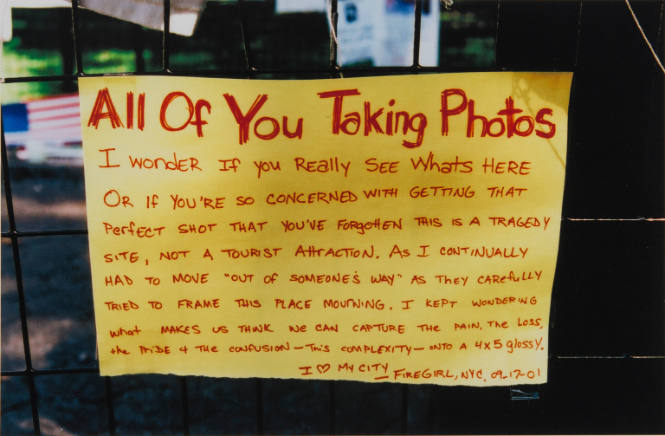 All Of You Taking Photos
I wonder If you Really See Whats Here
Or if you're so concerned with getting that
Perfect shot that you've forgotten this is a tragedy
site, not a tourist attraction. As I continually
had to move "out of someone's way" as they carefully
tried to frame this place mourning, I kept wondering
what makes us think we can capture the pain, the loss,
the pride & the confusion – this complexity – onto a 4x5 glossy.
I ♡ My City – Firegirl, NYC, 09-17-01